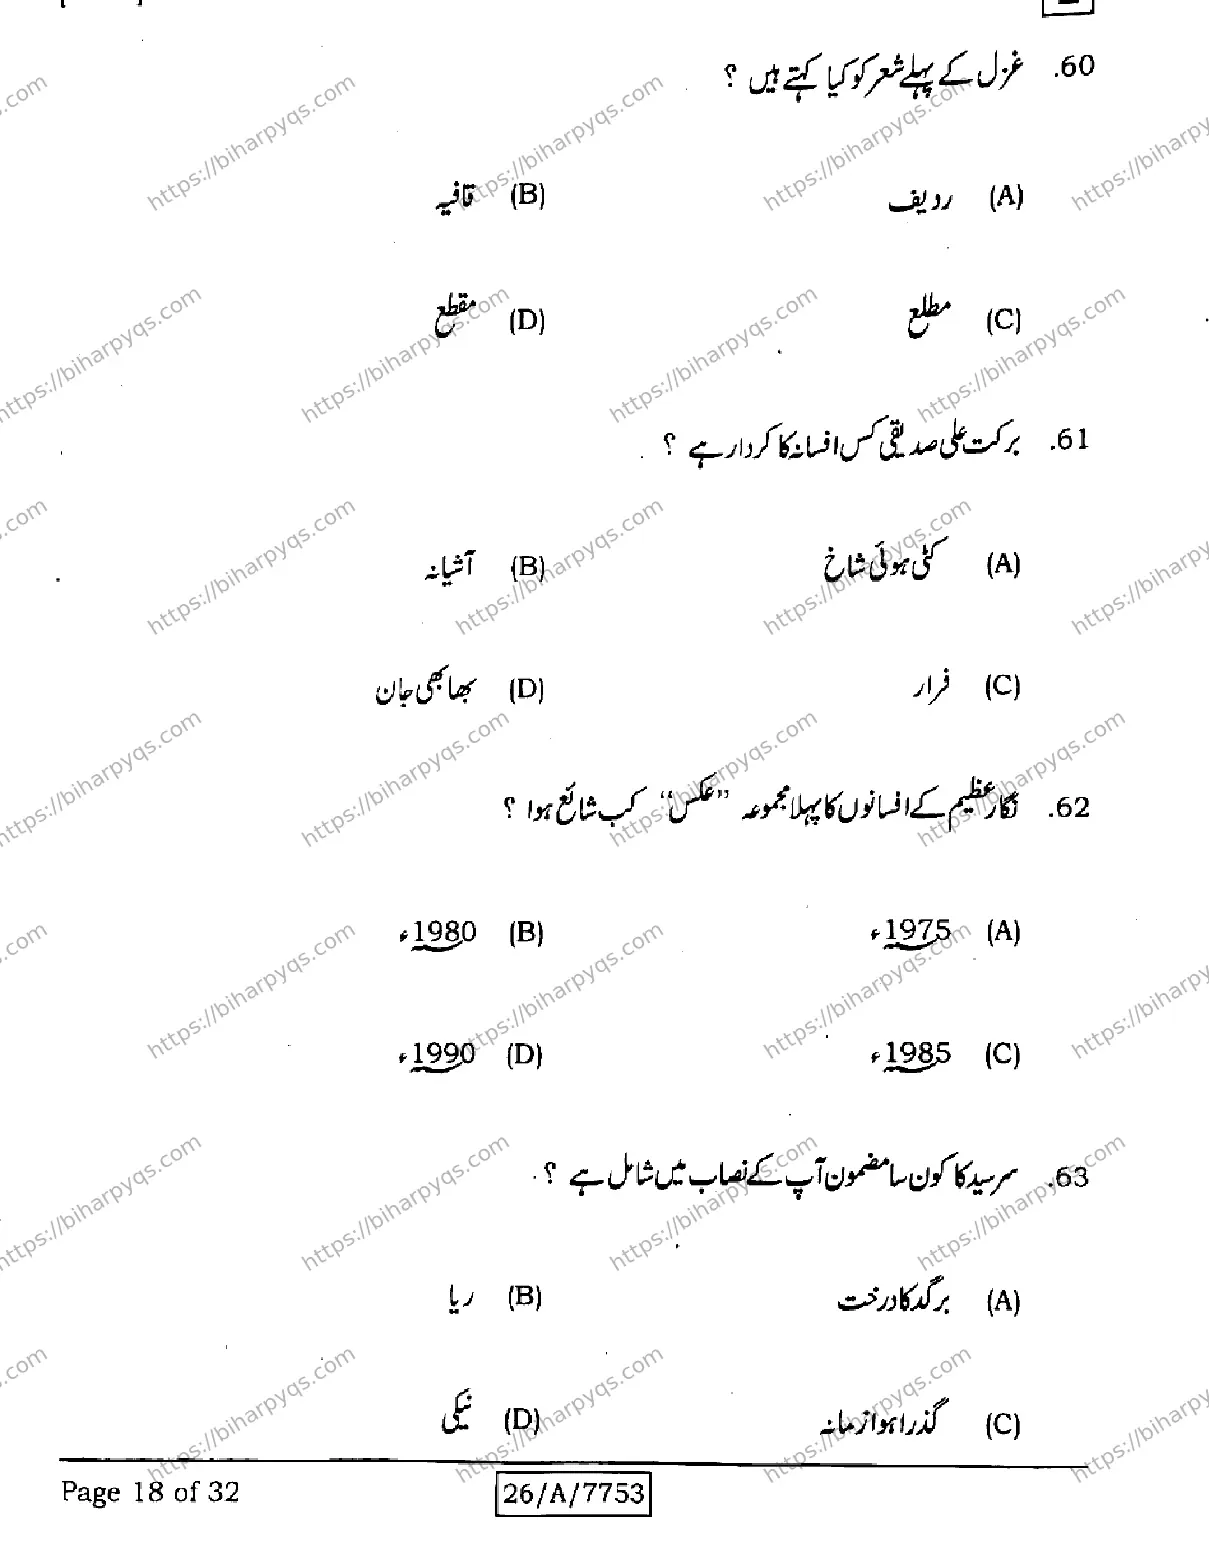 60. غزل کے پہلے شعر کو کیا کہتے ہیں ؟
(A) ردیف (B) قافیہ
(C) مطلع (D) مقطع
61. برکت علی صدیقی کس افسانہ کا کردار ہے ؟
(A) کٹی ہوئی شاخ (B) آشیانہ
(C) فرار (D) بھابھی جان
62. نگار عظیم کے افسانوں کا پہلا مجموعہ ”عکس“ کب شائع ہوا ؟
(A) 1975ء (B) 1980ء
(C) 1985ء (D) 1990ء
63. سرسید کا کون سا مضمون آپ کے نصاب میں شامل ہے ؟
(A) برگد کا درخت (B) ریا
(C) گذرا ہوا زمانہ (D) نیکی
Page 18 of 32 26/A/7753
https://biharpyqs.com